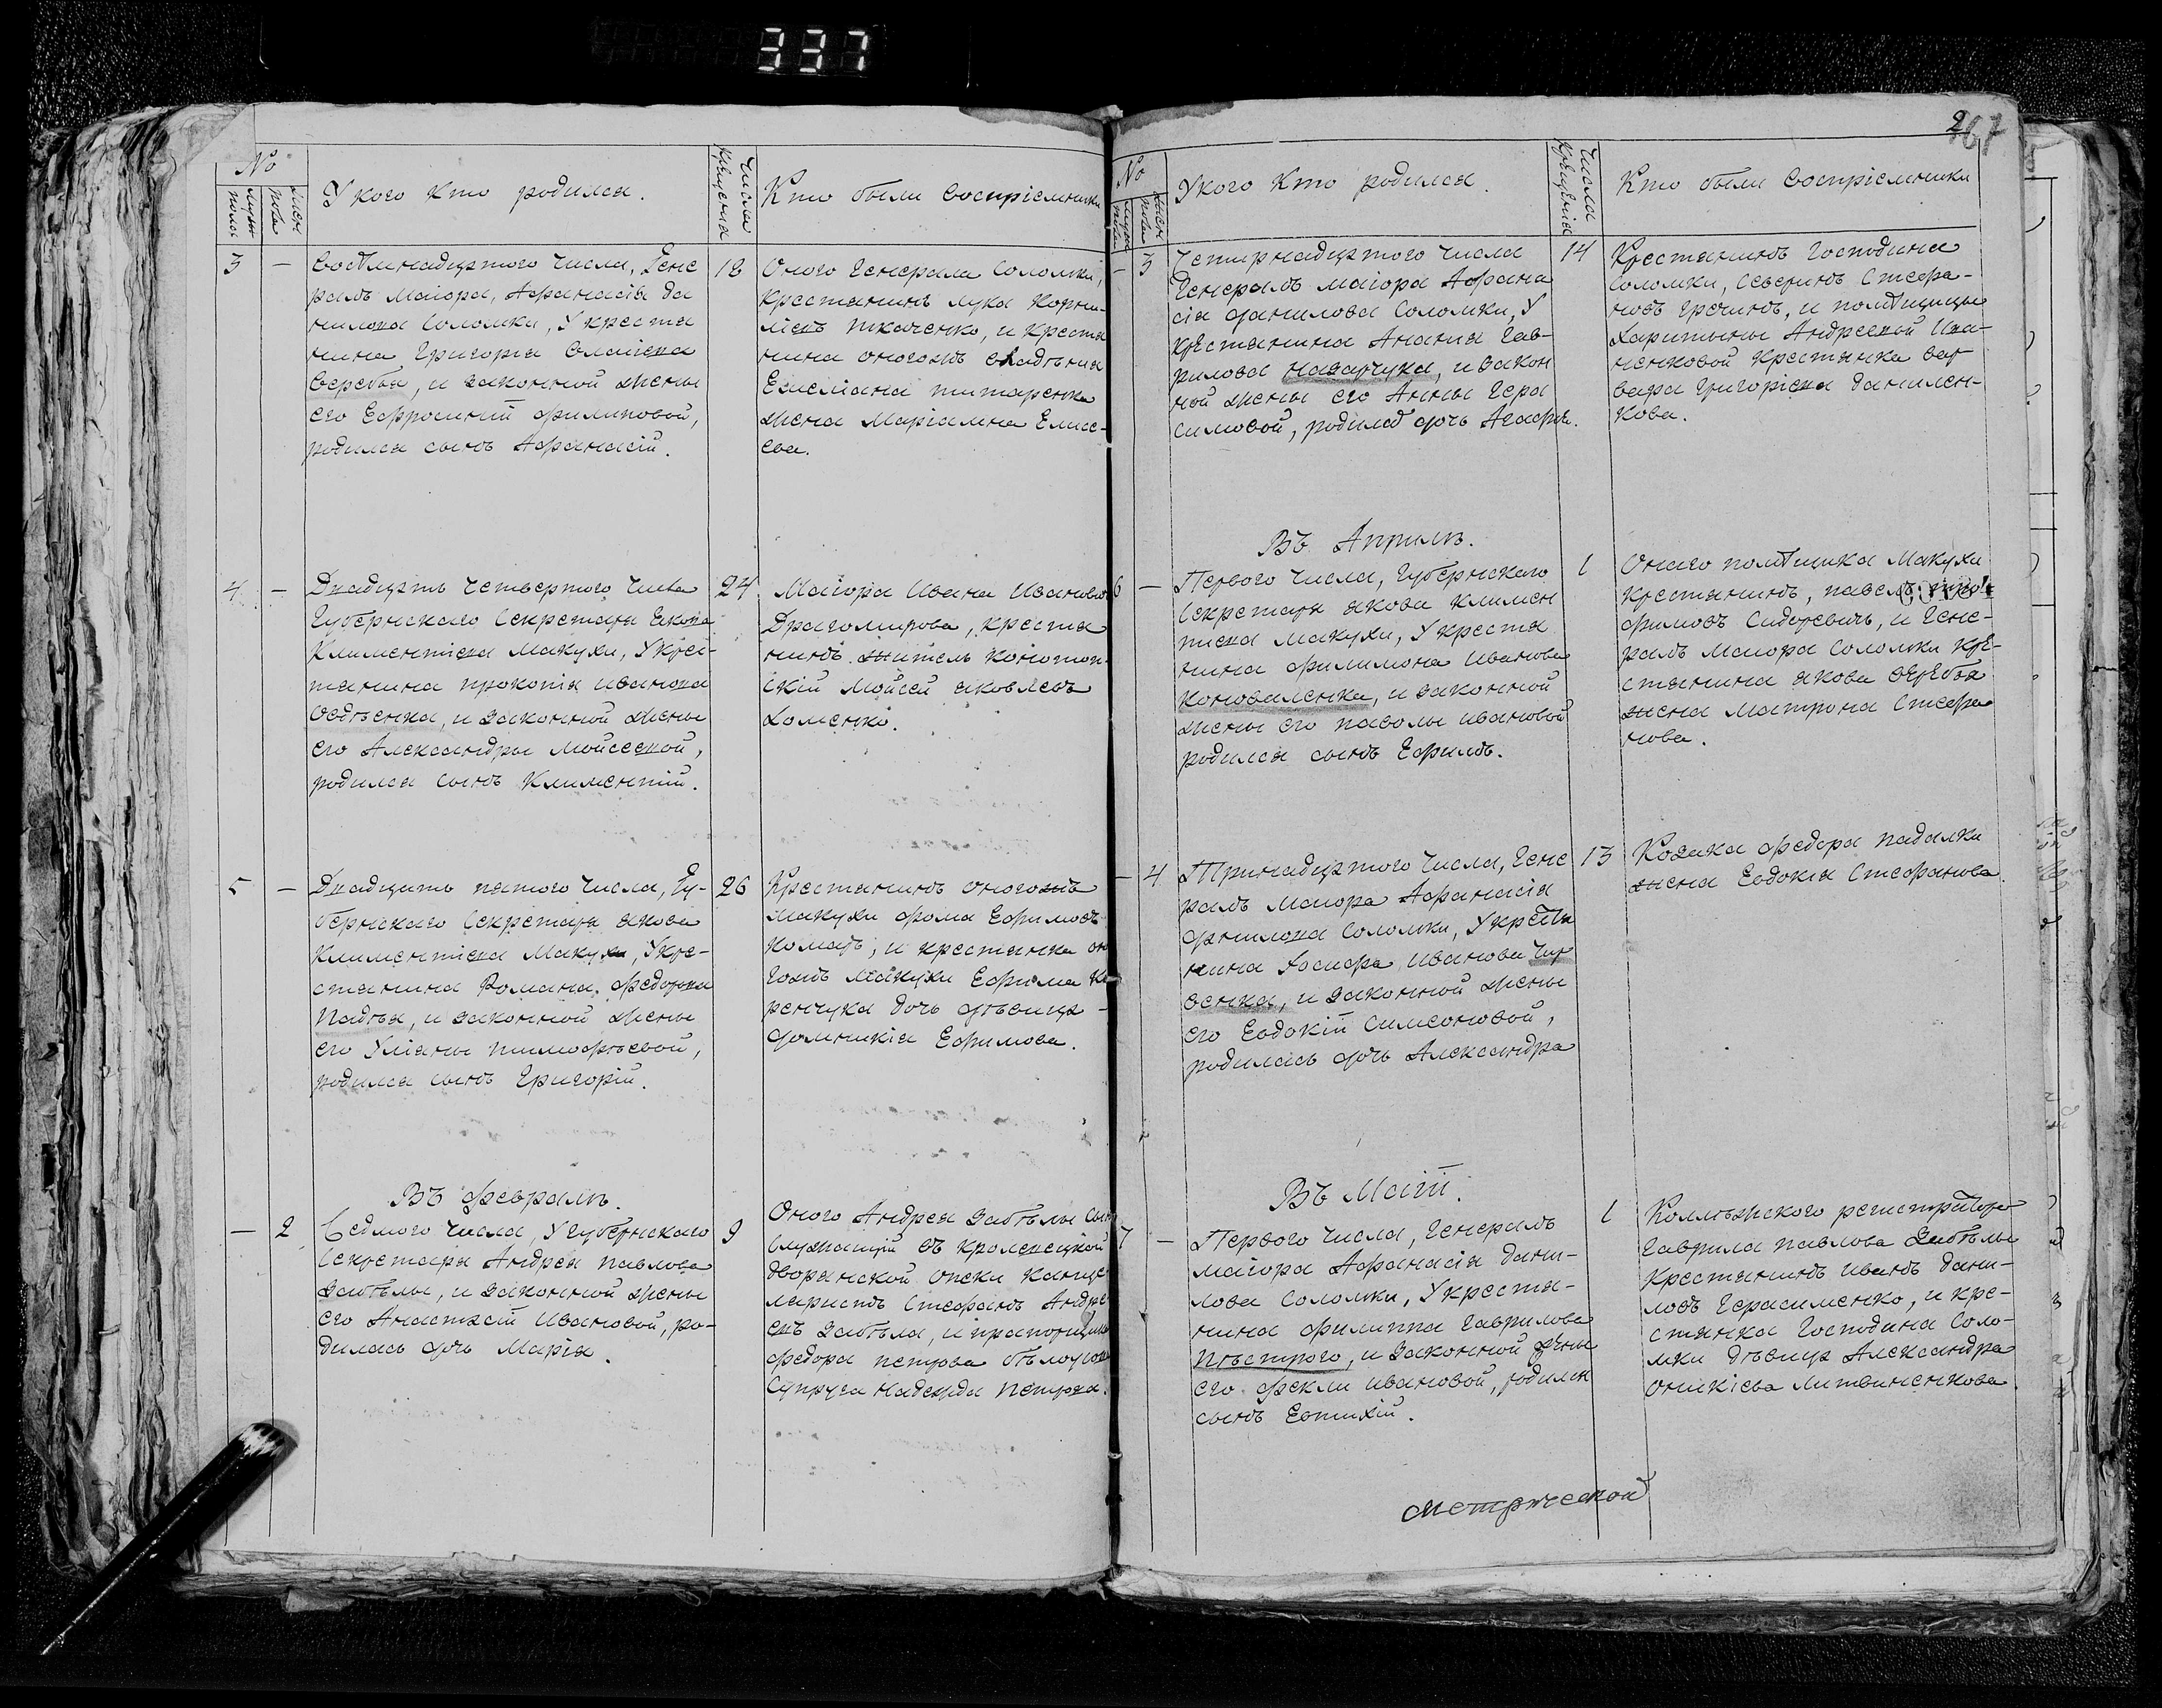 337
№
муже
пола
женс
пола
У кого кто родился.
Числа
Крещения
Кто были восприемники
3 — Восѣмнадцятого числа, Гене
ралъ маіора, Афанасія Да
нилова Соломки, У крестя
нина Григорія Власіева
Веребья, и законной жены
его Ефросиніи филиповой,
родился сынъ Афанасій.
18
Оного Генерала Соломки,
Крестянинъ лука Корни-
ліевъ ткаченко, и крестя
нина оногожъ владѣнія
Емеліана титаренка
жена Маріамна Елисе-
ева.
4 — Двадцять четвертого числа
Губернскаго Секретаря Якова
Климентіева Макухи, У крес-
тянина прокопія иванова
Овдѣенка, и законной жены
его Александры Мойсеевой,
родился сынъ Климентій.
24
Маіора Ивана Иванова
Драгомирова, крестя
нинъ житель конотоп-
скій Мойсей яковлевъ
Хоменко.
5 — Двадцять пятого числа, Гу-
бернскаго Секретаря якова
Климентіева Макухи, У кре-
стянина Романа федорова
Падѣя, и законной жены
его Уліаны тимофѣевой,
родился сынъ Григорій.
26
Крестянинъ оногожъ
макухи фома Ефимовъ
комаръ, и крестянка оно
гожъ макухи Ефима
ренчука дочь дѣвица
Домникія Ефимова.
Въ февралѣ.
— 2 Седмого числа, У губернскаго
Секретаря Андрея павлова
Забѣлы, и законной жены
его Анастасіи Ивановой, ро-
дилась дочь Марія.
9
Оного Андрея Забѣлы сынъ
служащій въ кролевецкой
дворянской опеки канце
ляристъ Стефанъ Андре
евъ Забѣла, и прапорщика
федора петрова
Супруга Надежда Петрова.
267
№
мужс
пола
женс
пола
У кого Кто родился.
Числа
Крещенія
Кто были восприемники
— 3 Четырнадцятого числа
Генералъ маіора Афана
сія данилова Соломки, У
крестянина Ананія Гав-
рилова Назарчука, и закон
ной жены его Анны Гера
симовой, родилась дочь Агафія.
14
Крестянинъ Господина
Соломки, Северинъ Стефа-
новъ Гречинъ, и помѣщицы
Харитыны Андреевой Ива-
ненковой крестянка вар
вара Григоріева Данилен-
кова.
Въ Априлѣ.
6 — Первого числа, Губернскаго
Секретаря якова Климен
тіева макухи, У крестя
нина филимона Иванова
Коноваленка, и законной
жены его павлы ивановой
родился сынъ Ефимъ.
1
Онаго помѣщика Макухи
крестянинъ, павелъ
фимовъ Сидоревичь, и Гене-
ралъ маіора Соломки кре-
стянина якова веребья
жена Матрона Стефа
нова.
— 4 Тринадцятого числа, Гене
ралъ маіора Афанасія
данилова Соломки, У кресья
нина Іосифа Иванова Чир
венка, и законной жены
его Евдокіи Симеоновой,
родилась дочь Александра
13
Козака федора падалки
жена Евдокія Стефанова.
Въ Маіи.
7 — Первого числа, Генералъ
маіора Афанасія дани-
лова Соломки, У крестя-
нина филиппа Гаврилова
Пѣстрого, и законной жены
его феклы ивановой, родился
сынъ Евтихій.
1
Коллѣжского регистратора
Гаврила павлова Забѣлы
крестянинъ иванъ дани-
ловъ Герасименко, и кре-
стянка Господина Соло-
мки дѣвица Александра
Оникіева Литвиненкова.
метрической